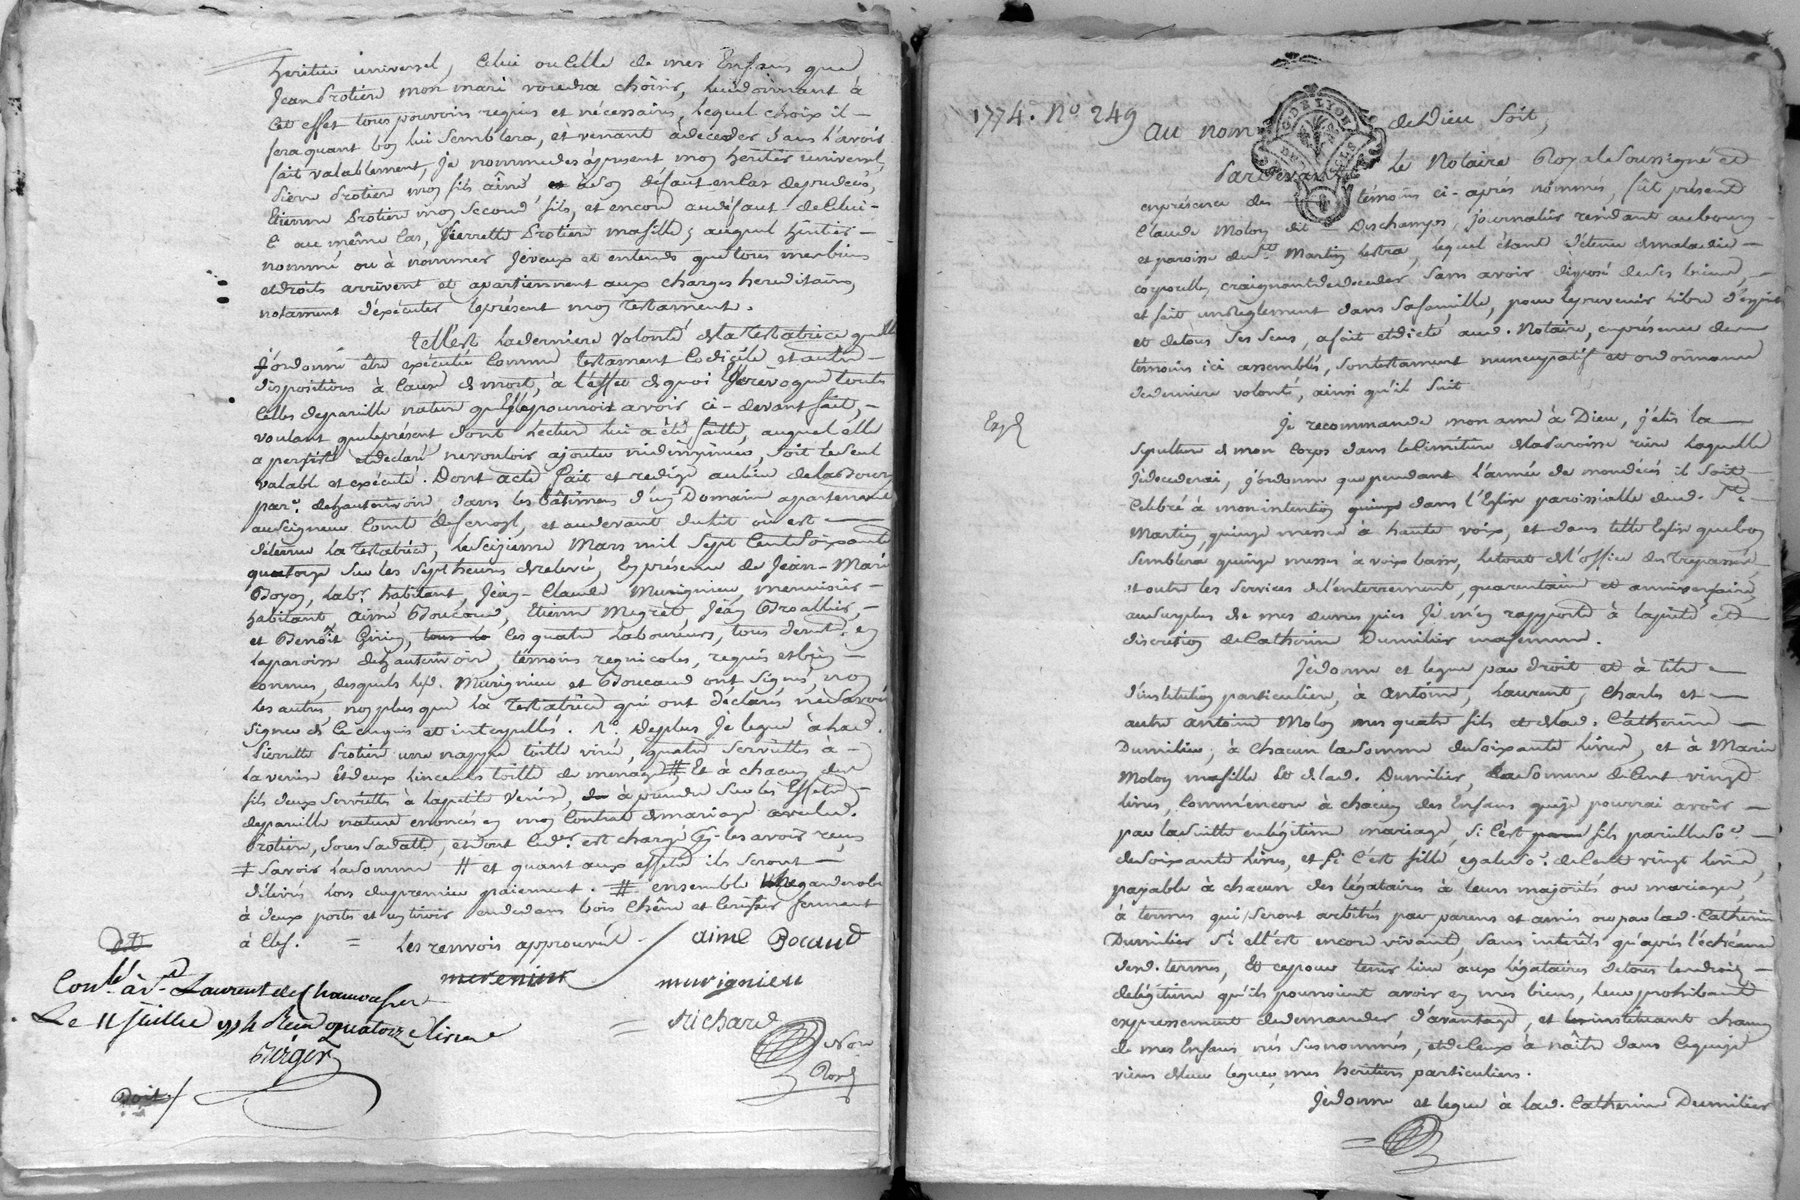 heritier universel, celui ou celle de mes Enfans que
Jean Protiere mon mari voudra choisir, lui donnant à
Cet effet tous pouvoirs requis et nécessaires, lequel choix il
fera quant bon lui semblera, et venant a deceder sans l'avoir
fait valablement, Je nomme des àpresent mon heritier universel,
Pierre Protiere mon fils aîné et à son défaut en cas de predecés,
Etienne Protiere mon second fils, et encore au défaut de Celui-
C. au même Cas, Pierrette Protiere ma fille, auquel héritier
nommé ou à nommer Je veux et entends que tous mes biens
et droits arrivent et apartiennent aux charges hereditaires,
notament d'exécuter le présent mon testament.
Telle est la derniere volonté de la Testatrice quelle
Jordonne être exécutée comme testament Codicile et autre
dispositions à cause de mort, à l'effet de quoi Elle revoque toutes
Celles de pareille nature qu'Elle pourroit avoir ci-devant fait,
voulant que le présent dont lecture lui a été faitte, auquel elle
a persisté et declaré ne vouloir ajouter ni diminuer, soit le seul
valable et exécuté. Dont acte fait et redigé au lieu de la Bourg
par.e de hauterivoire dans les bâtimens d'un Domaine appartenant
au seigneur Comte de et au devant du lit où est
détenue la Testatrice, le seizieme Mars mil sept cent soixante
quatorze sur les sept heures de relevée, En présence de Jean-Marie
Boyon, lab.r habitant, Jean-Claude Murignieu, menuisier
habitant, aimé Boucaud, Etienne Megret, Jean Broallier,
et Benoît Giriny, tous les quatre Laboureurs, tous demt. en
la paroisse de hauterivoire, témoins regnicoles, requis et bien
connus, desquels led. Murignieu et Boucaud ont signés, non
les autres non plus que la Testatrice qui ont déclarés ne le savoir
signer de ce enquis et interpellés. 1.o Deplus Je legue à lad.
Pierrette Protiere une nappe toille virée, quatre serviettes à
la venise et deux linceuls toille de menage # Et à chacun des
fils deux serviettes à la petite venise, à prendre sur les Effets
de pareille nature enoncés en mon Contrat de mariage avec led.
Protiere, sous sa datte, et dont led. est chargé les avoir reçus
‡ savoir la somme # et quant aux effets ils seront
délivrés lors du premier paiement. # ensemble une garderobe
à deux portes et un tiroir au dedans bois Chêne et Cerisier fermant
à Clef. = Les renvois approuvés. aime Bocaud
murenieux murignieu
Con.lé à S.t Laurent de Chamousset
Le 11 juillet 1774 Reçu quatorze livres
Berger
= Richard
Nore
Royl
1774. N.o 249
au nom de Dieu soit,
Pardevant Le Notaire Royal soussigné et
en présence des témoins ci-après nommés, fût présent
Claude Moloy dit Deschamps, journalier residant au bourg
et paroisse de S.t Martin Lestra, lequel étant détenu de maladie
corporelle, craignant de deceder sans avoir disposé de ses biens,
et fait un reglement dans sa famille, pour les prevenir libre d'esprit
et de tous ses sens, a fait et dicté aud. Notaire, en présence des
témoins ici assemblés, son testament nuncupatif et ordonnance
de derniere volonté, ainsi qu'il suit
Exp.é
Je recommande mon ame à Dieu, j'elis la
sepulture de mon Corps dans le Cimetiere de la Paroisse riere laquelle
Je decederai, j'ordonne que pendant l'année de mon décés il soit
Celebré à mon intention quinze dans l'Eglise paroissialle dud. S.t
Martin, quinze messes à haute voix, et dans telle Eglise que bon
semblera quinze messes à voix basse, le tout de l'office des Trepassés
et outre les services de l'enterrement, quarantaine et anniversaire,
au surplus de mes œuvres pies Je m'en rapporte à la pieté et
discretion de Catherine Dumilier ma femme.
Je donne et legue par droit et à titre
d'institution particuliere, à antoine, Laurent, Charles et
autre antoine Moloy mes quatre fils et de lad. Catherine
Dumilier, à chacun la somme de soixante livres, et à Marie
Moloy ma fille et de lad. Dumilier, la somme de Cent vingt
livres, comm'encore à chacun des Enfans que je pourrai avoir
par la suitte en légitime mariage, si c'est fils pareille so.e
de soixante Livres, et si c'est fille, egale so.e de Cent vingt livres,
payable à chacun des légataires à leurs majorités ou mariages,
à termes qui seront arbitrés par parens et amis ou par lad. Catherine
Dumilier si ell'est encore vivante, sans intérêts qu'après l'échéance
desd. termes, Et ce pour tenir lieu aux légataires de tous les droits
de légitime qu'ils pourroient avoir en mes biens, leur prohibant
expressement de demander d'avantage, et instituant chacun
de mes Enfans nés susnommés, et de ceux à naître dans ce que je
viens de leur leguer, mes heritiers particuliers.
Je donne et legue à lad. Catherine Dumilier